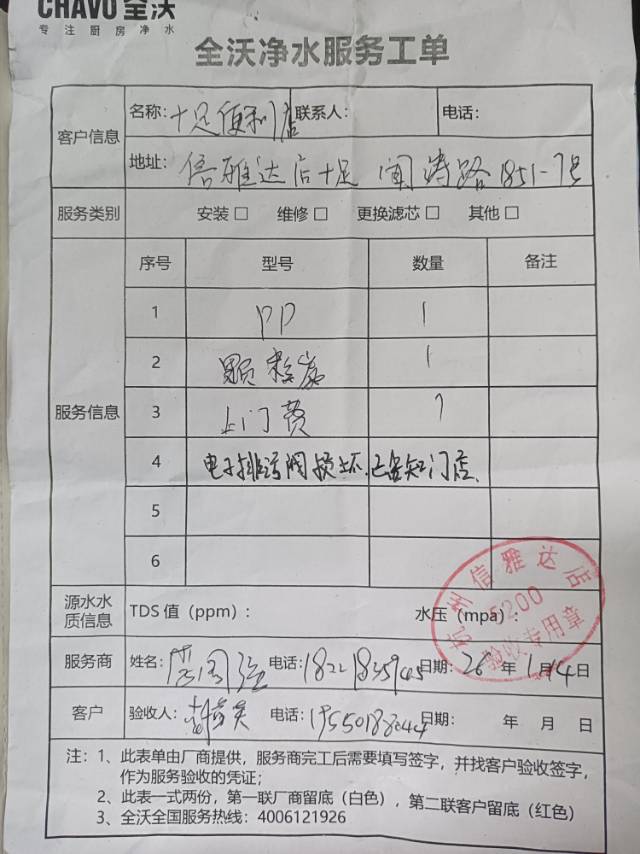 CHAVO 全沃
专注厨房净水
全沃净水服务工单
客户信息
名称：十足便利店 联系人： 电话：
地址：信雅达店十足 闻涛路1851-7号
服务类别 安装□ 维修□ 更换滤芯□ 其他□
服务信息
序号 型号 数量 备注
1 PP 1
2 颗 1
3 上门费 1
4 电子排污阀损坏.已告知门店.
5
6
源水水质信息 TDS 值（ppm）： 水压（mpa）：
杭州信雅达店
5200
验收专用章
服务商 姓名： 电话：18221835945 日期：26 年 1 月 14 日
客户 验收人： 电话： 日期： 年 月 日
注：1、此表单由厂商提供，服务商完工后需要填写签字，并找客户验收签字，
作为服务验收的凭证；
2、此表一式两份，第一联厂商留底（白色），第二联客户留底（红色）
3、全沃全国服务热线：4006121926